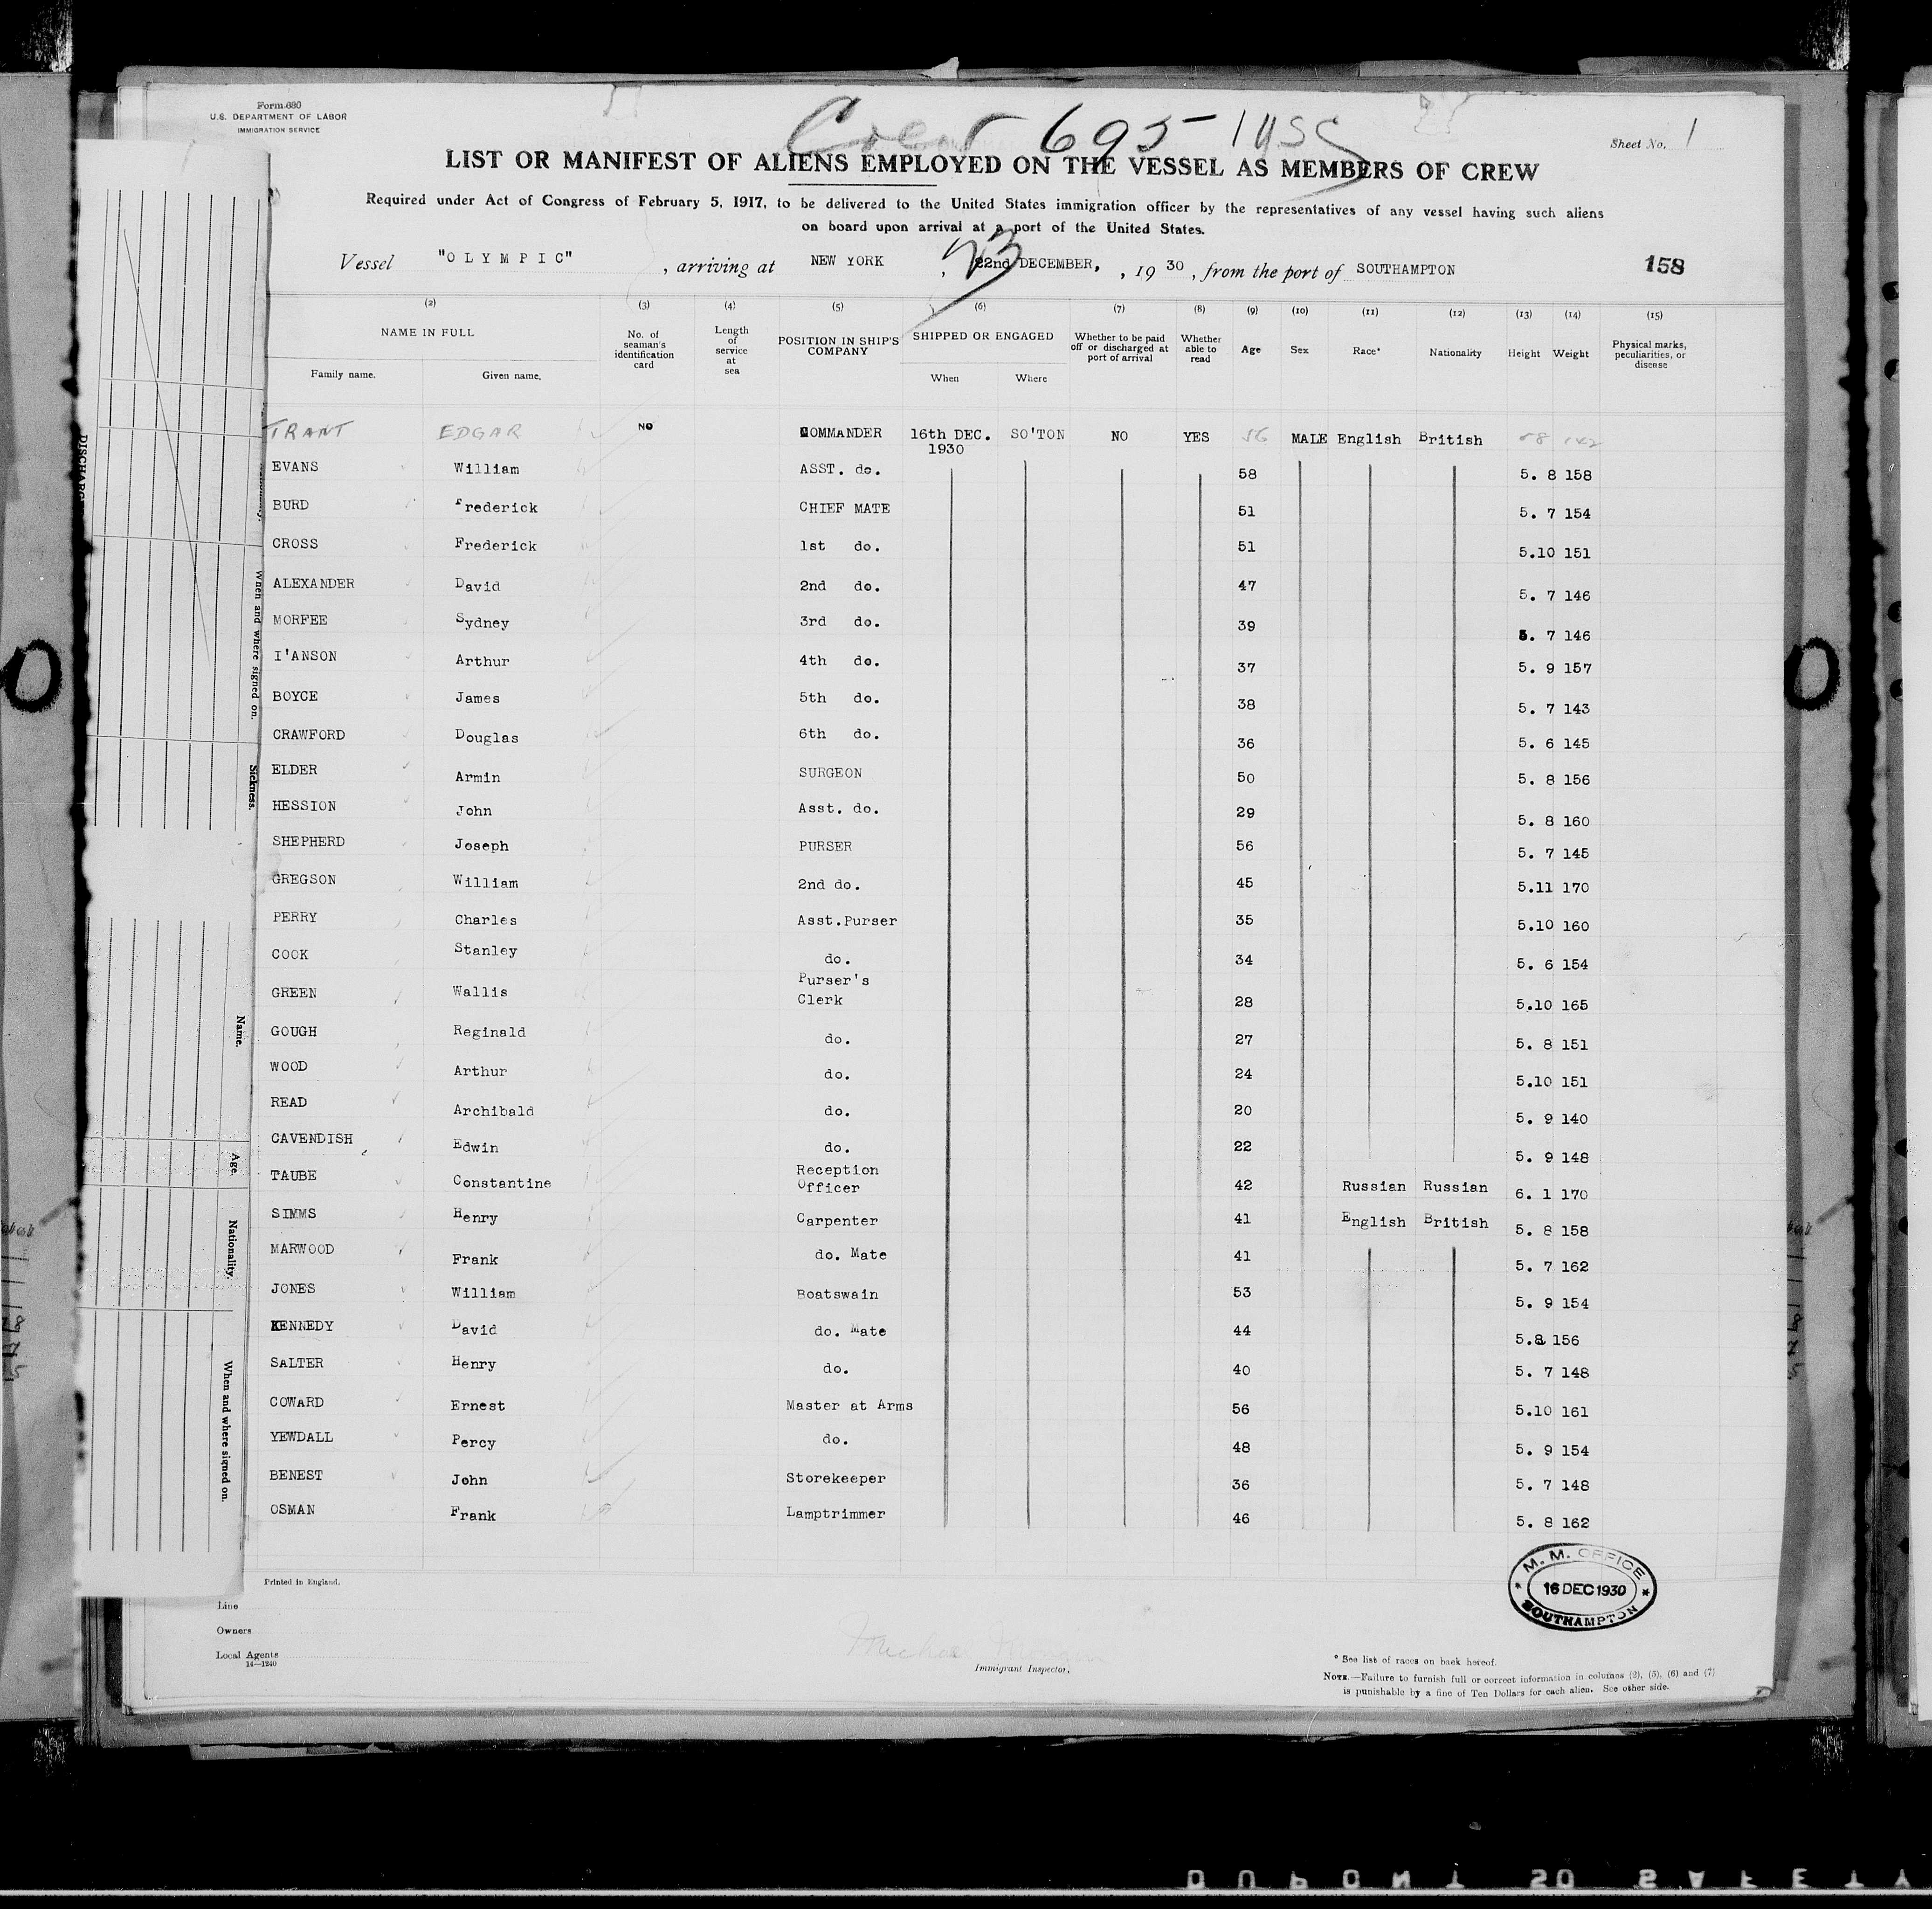 Form 680
U.S. DEPARTMENT OF LABOR
IMMIGRATION SERVICE
Crew 695 - 1 USC
Sheet No. 1
LIST OR MANIFEST OF ALIENS EMPLOYED ON THE VESSEL AS MEMBERS OF CREW
Required under Act of Congress of February 5, 1917, to be delivered to the United States immigration officer by the representatives of any vessel having such aliens
on board upon arrival at a port of the United States.
Vessel "OLYMPIC", arriving at NEW YORK, 23 22nd DECEMBER, , 19 30, from the port of SOUTHAMPTON 158
(2) (3) (4) (5) (6) (7) (8) (9) (10) (11) (12) (13) (14) (15)
NAME IN FULL No. of seaman's identification card Length of service at sea POSITION IN SHIP'S COMPANY SHIPPED OR ENGAGED Whether to be paid off or discharged at port of arrival Whether able to read Age Sex Race* Nationality Height Weight Physical marks, peculiarities, or disease
Family name. Given name. When Where
TRANT EDGAR NO COMMANDER 16th DEC. 1930 SO'TON NO YES 56 MALE English British 58 142
EVANS William ASST. do. 58 5. 8 158
BURD Frederick CHIEF MATE 51 5. 7 154
CROSS Frederick 1st do. 51 5.10 151
ALEXANDER David 2nd do. 47 5. 7 146
MORFEE Sydney 3rd do. 39 5. 7 146
I'ANSON Arthur 4th do. 37 5. 9 157
BOYCE James 5th do. 38 5. 7 143
CRAWFORD Douglas 6th do. 36 5. 6 145
ELDER Armin SURGEON 50 5. 8 156
HESSION John Asst. do. 29 5. 8 160
SHEPHERD Joseph PURSER 56 5. 7 145
GREGSON William 2nd do. 45 5.11 170
PERRY Charles Asst.Purser 35 5.10 160
COOK Stanley do. 34 5. 6 154
GREEN Wallis Purser's Clerk 28 5.10 165
GOUGH Reginald do. 27 5. 8 151
WOOD Arthur do. 24 5.10 151
READ Archibald do. 20 5. 9 140
CAVENDISH Edwin do. 22 5. 9 148
TAUBE Constantine Reception Officer 42 Russian Russian 6. 1 170
SIMMS Henry Carpenter 41 English British 5. 8 158
MARWOOD Frank do. Mate 41 5. 7 162
JONES William Boatswain 53 5. 9 154
KENNEDY David do. Mate 44 5.8 156
SALTER Henry do. 40 5. 7 148
COWARD Ernest Master at Arms 56 5.10 161
YEWDALL Percy do. 48 5. 9 154
BENEST John Storekeeper 36 5. 7 148
OSMAN Frank Lamptrimmer 46 5. 8 162
M. M. OFFICE
16 DEC 1930
SOUTHAMPTON
Printed in England.
Line
Owners
Local Agents
14—1240
Immigrant Inspector.
* See list of races on back hereof.
NOTE.—Failure to furnish full or correct information in columns (2), (5), (6) and (7)
is punishable by a fine of Ten Dollars for each alien. See other side.
When and where signed on.
Sickness.
Name.
Age.
Nationality.
When and where signed on.
DUPONT SAFETY